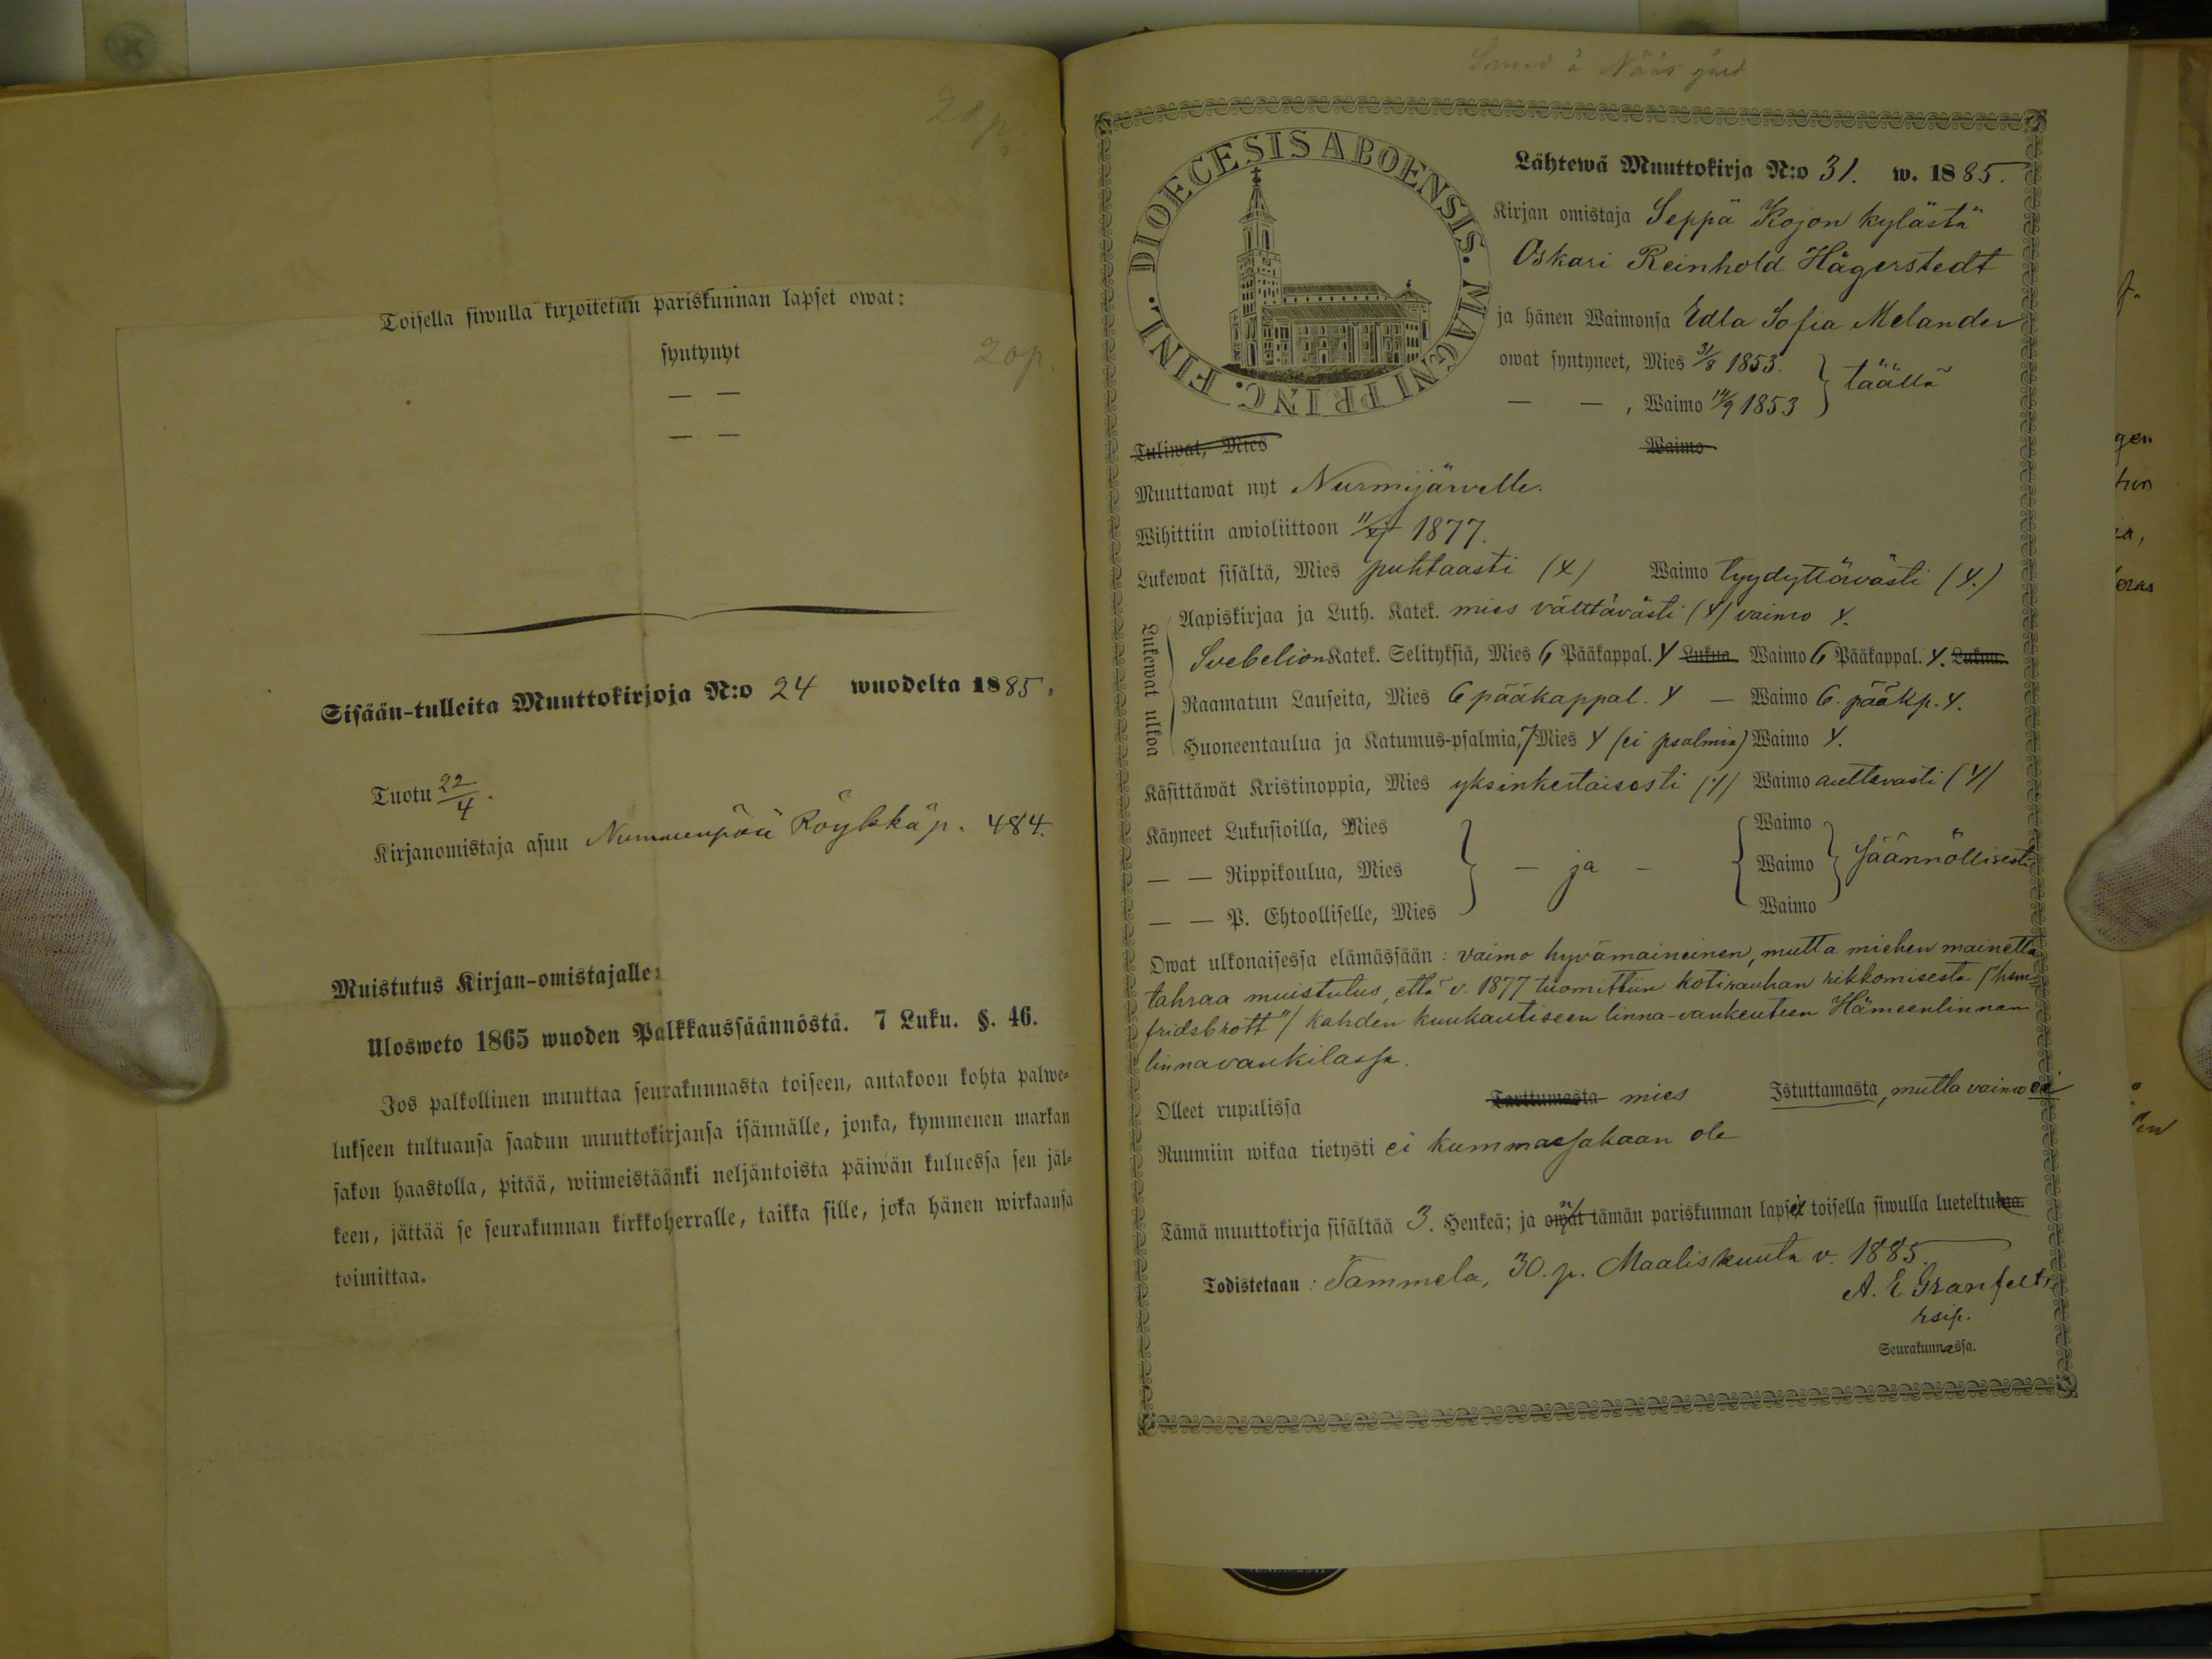 20 p.
Toisella siwulla kirjoitetun pariskunnan lapset owat:
syntynyt
20 p.
— —
— —
Sisään-tulleita Muuttokirjoja N:o 24 wuodelta 1885.
Tuotu 22/4.
Kirjanomistaja asuu Nummenpää Röykkä p. 484.
Muistutus Kirjan-omistajalle:
Ulosweto 1865 wuoden Palkkaussäännöstä. 7 Luku. §. 46.
Jos palkollinen muuttaa seurakunnasta toiseen, antakoon kohta palwe-
lukseen tultuansa saadun muuttokirjansa isännälle, jonka, kymmenen markan
sakon haastolla, pitää, wiimeistäänki neljäntoista päiwän kuluessa sen jäl-
keen, jättää se seurakunnan kirkkoherralle, taikka sille, joka hänen wirkaansa
toimittaa.
Smed å Nääs gård
DIOECESIS ABOENSIS. MAGNI PRINC. FINL.
Lähtewä Muuttokirja N:o 31. w. 1885.
Kirjan omistaja Seppä Kojon kylästä
Oskari Reinhold Hägerstedt
ja hänen Waimonsa Edla Sofia Melander
owat syntyneet, Mies 31/8 1853. } täällä
— — , Waimo 14/9 1853
Tuliwat, Mies Waimo
Muuttawat nyt Nurmijärvelle.
Wihittiin awioliittoon 1877.
Lukewat sisältä, Mies puhtaasti (x) Waimo tyydyttävästi (x.)
Lukewat ulkoa
Aapiskirjaa ja Luth. Katek. mies välttävästi (x) vaimo x.
Svebelion Katek. Selityksiä, Mies 6 Pääkappal. x Lukua Waimo 6 Pääkappal. x. Lukua
Raamatun Lauseita, Mies 6 pääkappal. x — Waimo 6. pääkp. x.
Huoneentaulua ja Katumus-psalmia, 7 Mies x (ei psalmia) Waimo x.
Käsittäwät Kristinoppia, Mies yksinkertaisesti (x) Waimo auttavasti (x)
Käyneet Lukusioilla, Mies Waimo
— — Rippikoulua, Mies } — ja — { Waimo } säännöllisesti
— — P. Ehtoolliselle, Mies Waimo
Owat ulkonaisessa elämässään: vaimo hyvämaineinen, mutta miehen mainetta
tahraa muistutus, että v. 1877 tuomittiin kotirauhan rikkomisesta ("hem-
fridsbrott") kahden kuukautiseen linna-vankeuteen Hämeenlinnan
linnavankilassa.
Olleet rupulissa Tarttumasta mies Istuttamasta, mutta vaimo ei
Ruumiin wikaa tietysti ei kummassakaan ole
Tämä muuttokirja sisältää 3. Henkeä; ja owat tämän pariskunnan lapset toisella siwulla lueteltuna.
Todistetaan: Tammela, 30. p. Maaliskuuta v. 1885.
A. E. Granfelt
Seurakunnassa.